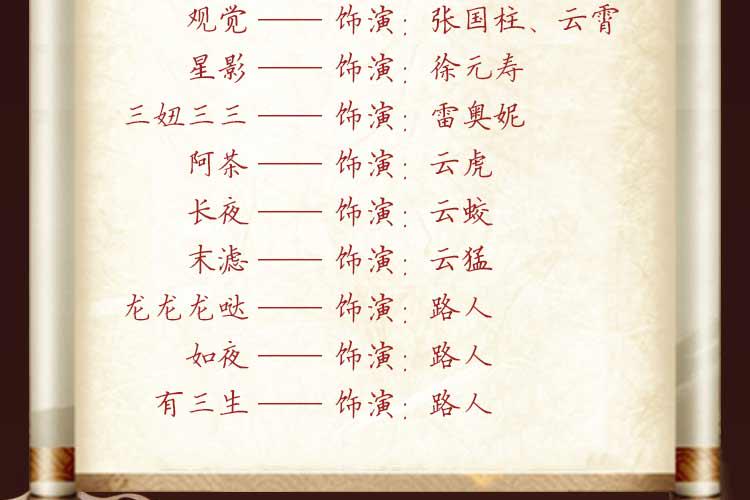 观觉 —— 饰演：张国柱、云霄
星影 —— 饰演：徐元寿
三妞三三 —— 饰演：雷奥妮
阿茶 —— 饰演：云虎
长夜 —— 饰演：云蛟
末滤 —— 饰演：云猛
龙龙龙哒 —— 饰演：路人
如夜 —— 饰演：路人
有三生 —— 饰演：路人